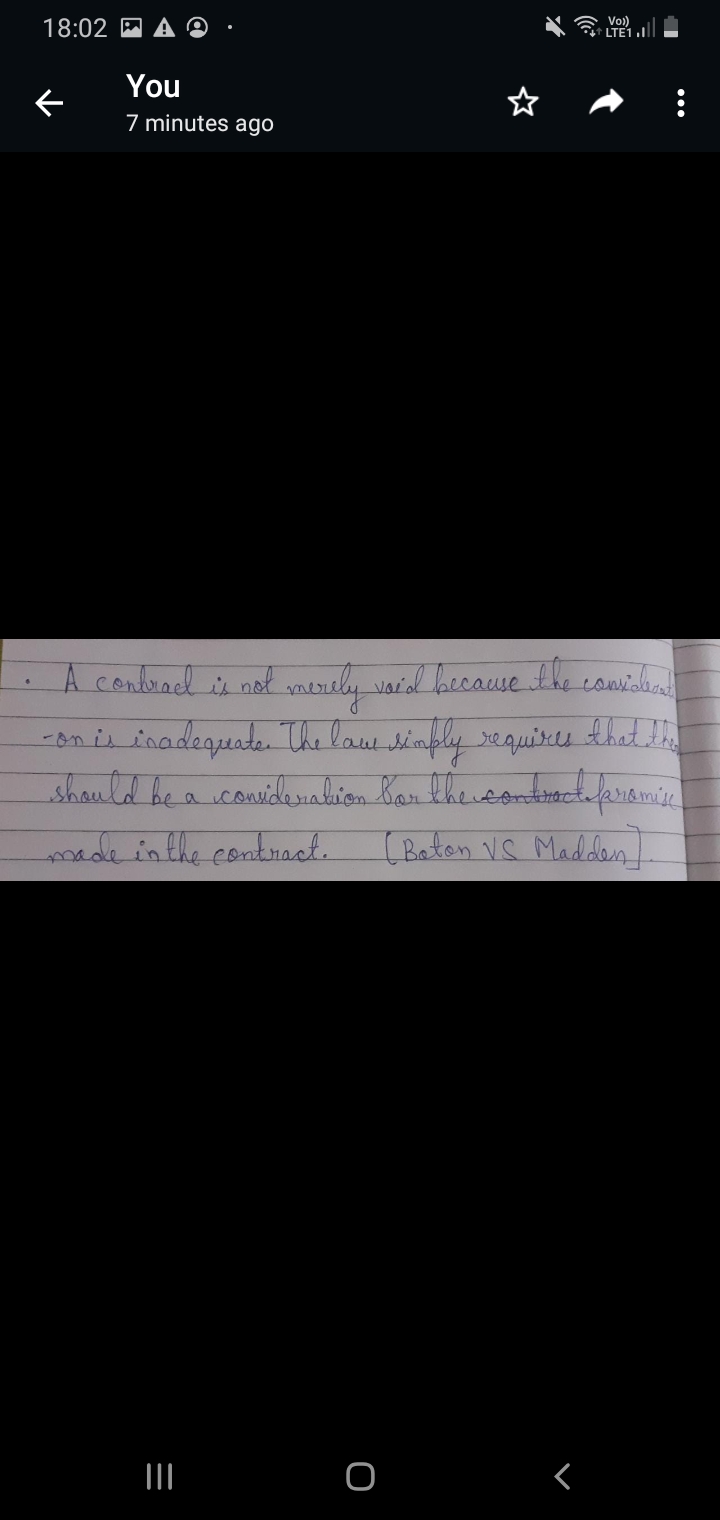 18:02
Vo))
LTE1
You
7 minutes ago
. A contract is not merely void because the considerati
-on is inadequate. The law simply requires that there
should be a consideration for the contract promise
made in the contract. [Boton VS Madden].